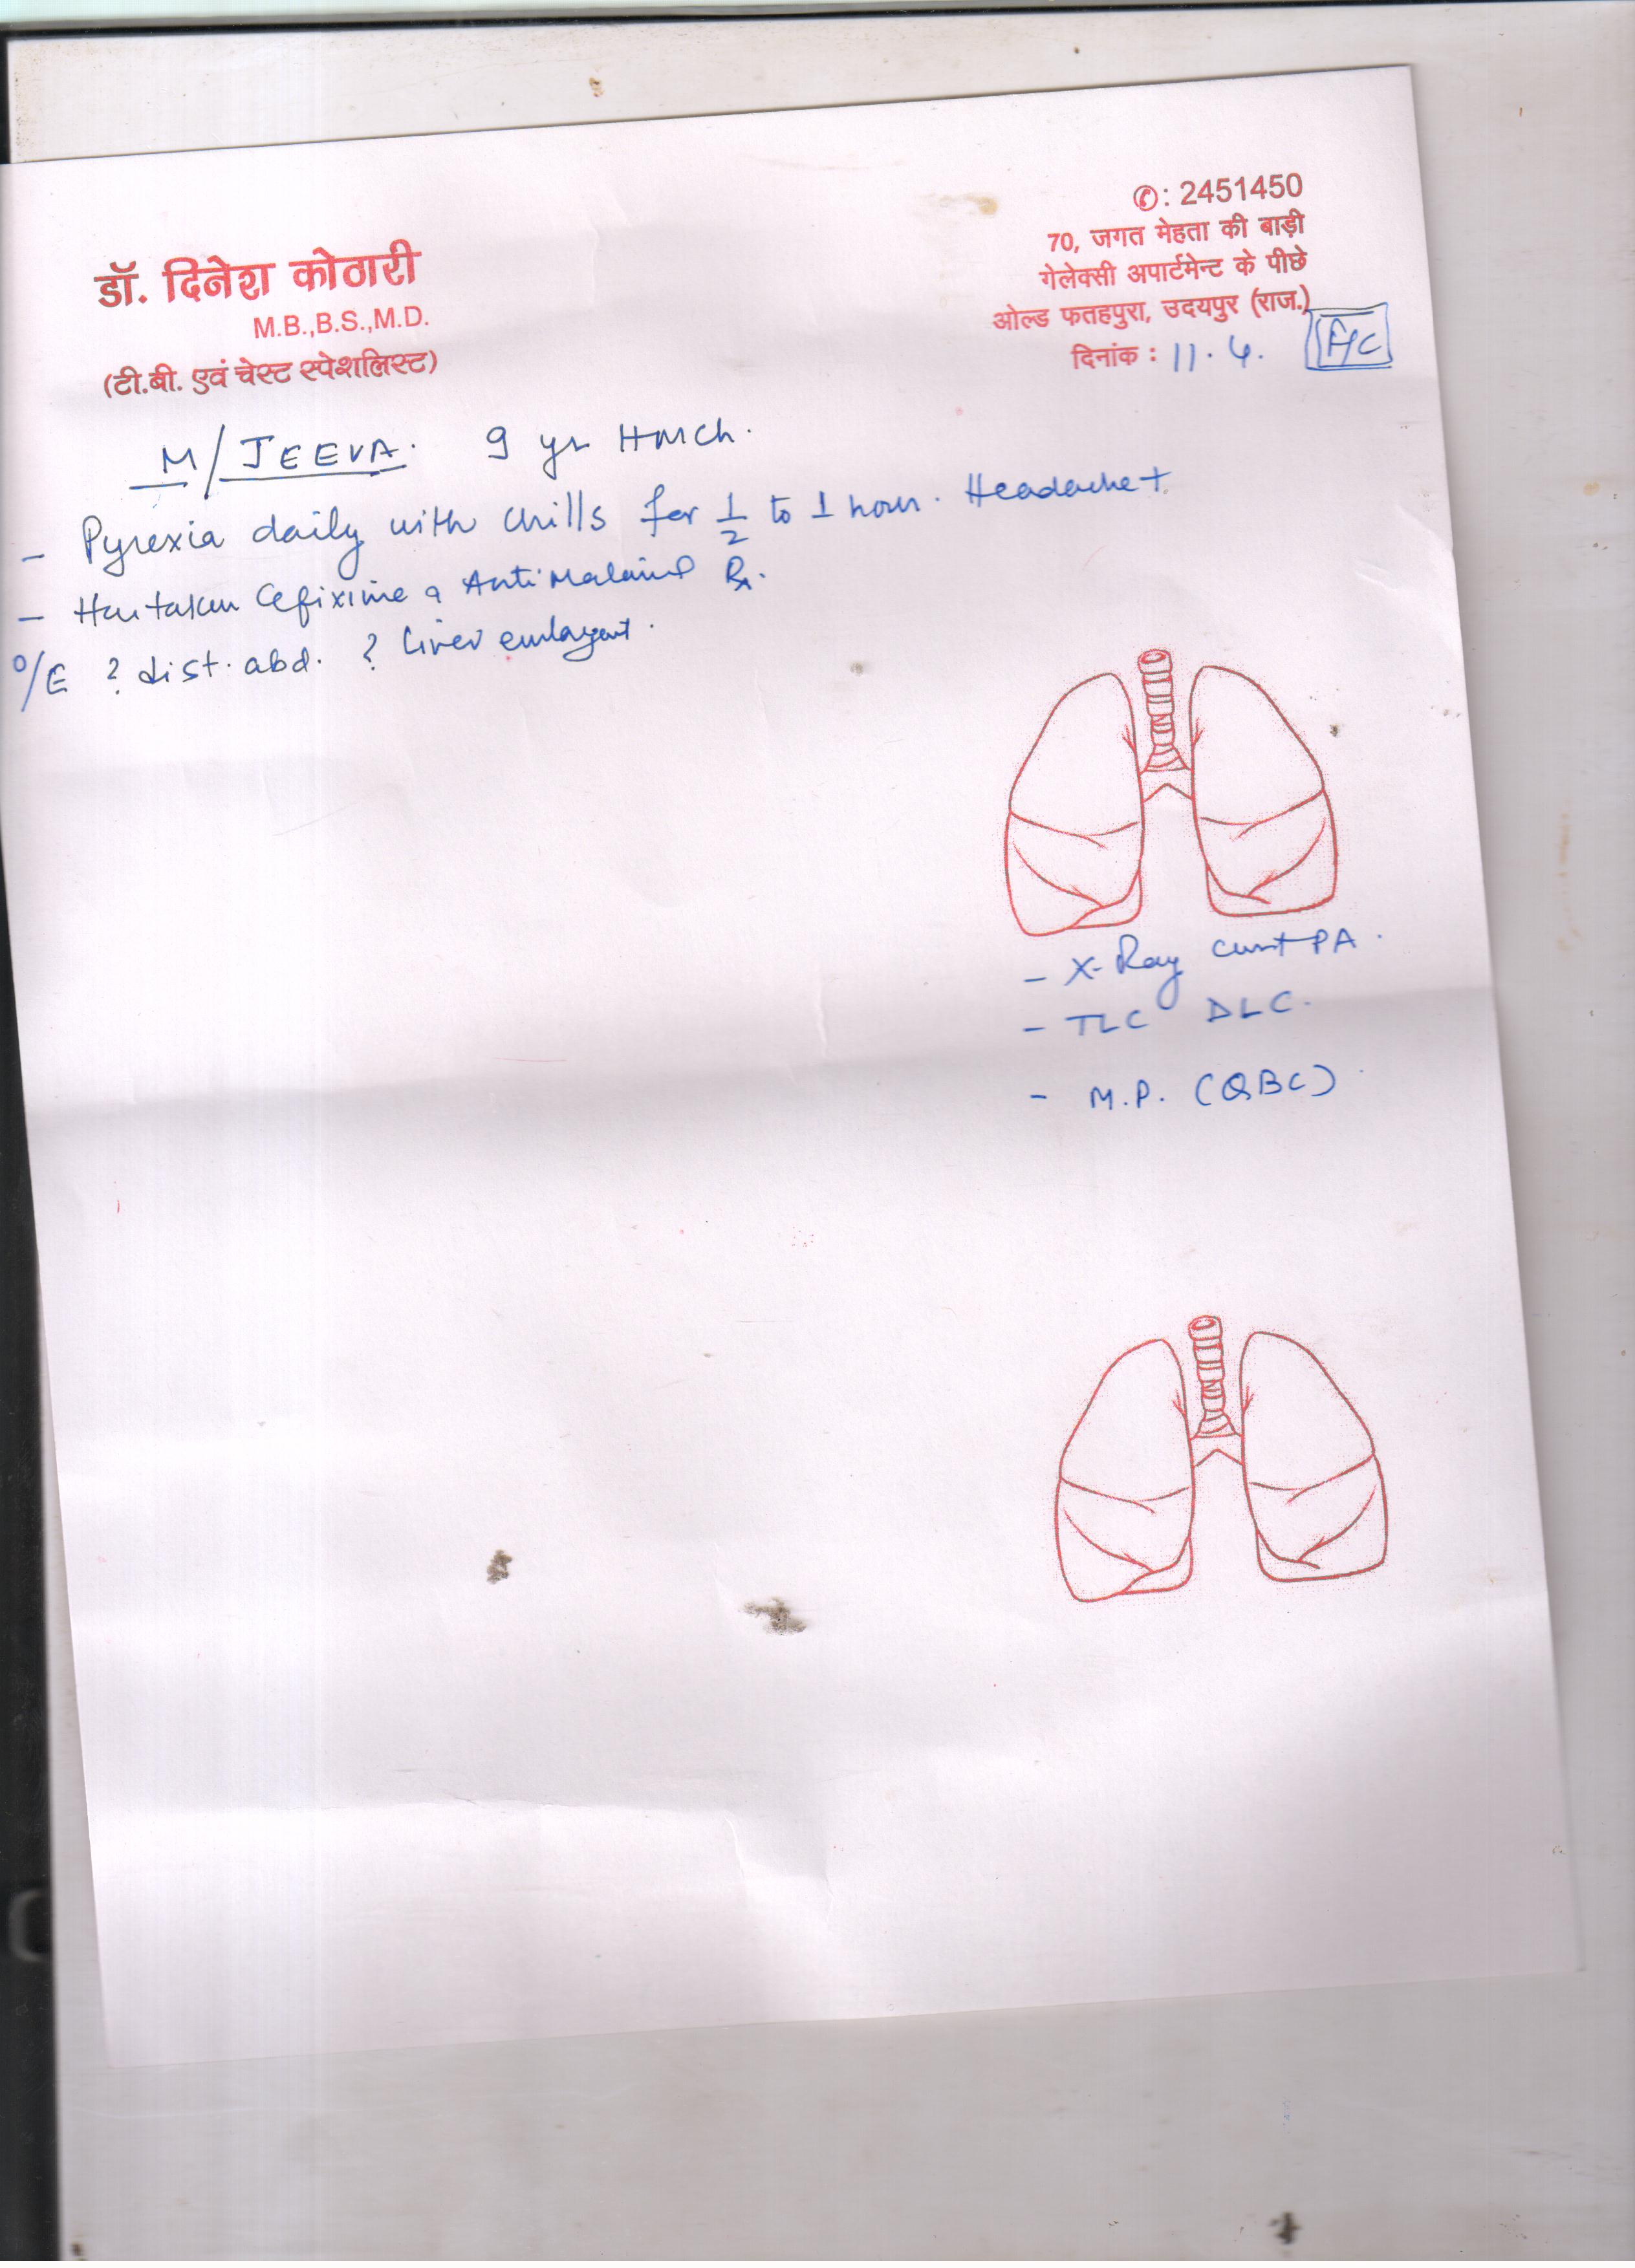 ✆: 2451450
70, जगत मेहता की बाड़ी
गेलेक्सी अपार्टमेन्ट के पीछे
ओल्ड फतहपुरा, उदयपुर (राज.)
दिनांक : 11.4.
डॉ. दिनेश कोठारी
M.B.,B.S.,M.D.
(टी.बी. एवं चेस्ट स्पेशलिस्ट)
M/JEEVA. 9 yr
- Pyrexia daily with chills for 1/2 to 1 hour. Headache +
- Has taken Cefixime & Antimalarial Rx.
O/E ? dist. abd. ? Liver enlargent.
- X-Ray chest PA.
- TLC DLC.
- M.P. (QBC)